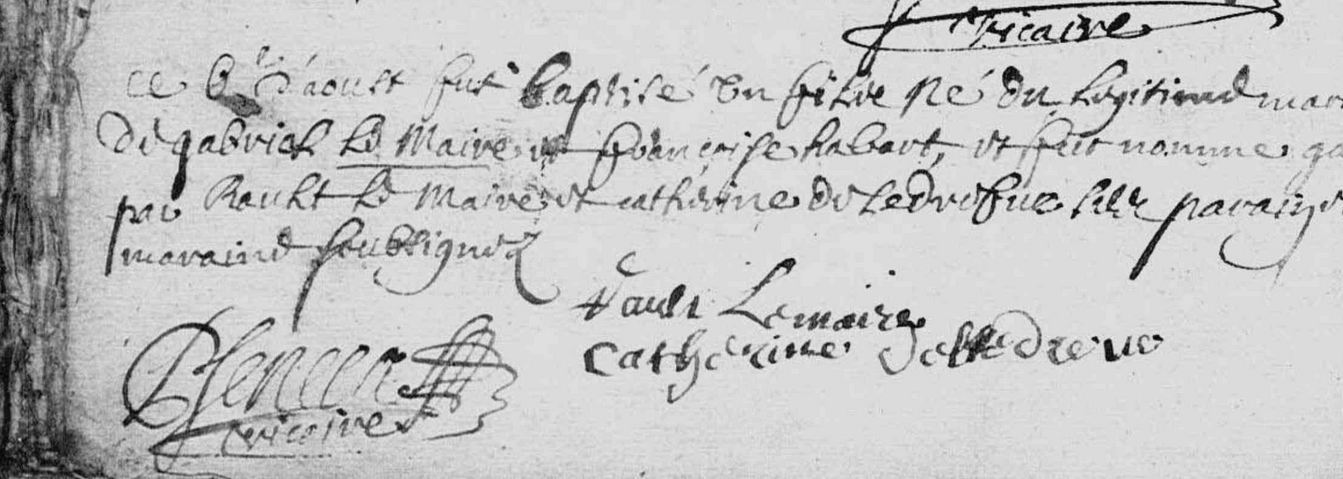 vicaire
ce 6e d'aoust fut baptisé un filse né du legitime mar
de gabriel le Maire et françoise habart, et fut nomme ga
par Rault le Maire et catherine deledreSue les parain et
maraine soubsignez
Rault Lemaire
Catherine delledreue
vicaire